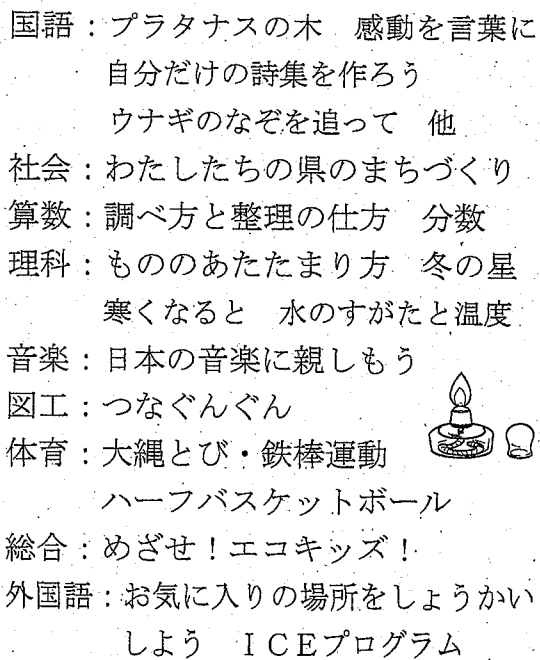 国語：プラタナスの木　感動を言葉に
自分だけの詩集を作ろう
ウナギのなぞを追って　他
社会：わたしたちの県のまちづくり
算数：調べ方と整理の仕方　分数
理科：もののあたたまり方　冬の星
寒くなると　水のすがたと温度
音楽：日本の音楽に親しもう
図工：つなぐんぐん
体育：大縄とび・鉄棒運動
ハーフバスケットボール
総合：めざせ！エコキッズ！
外国語：お気に入りの場所をしょうかい
しよう　ＩＣＥプログラム